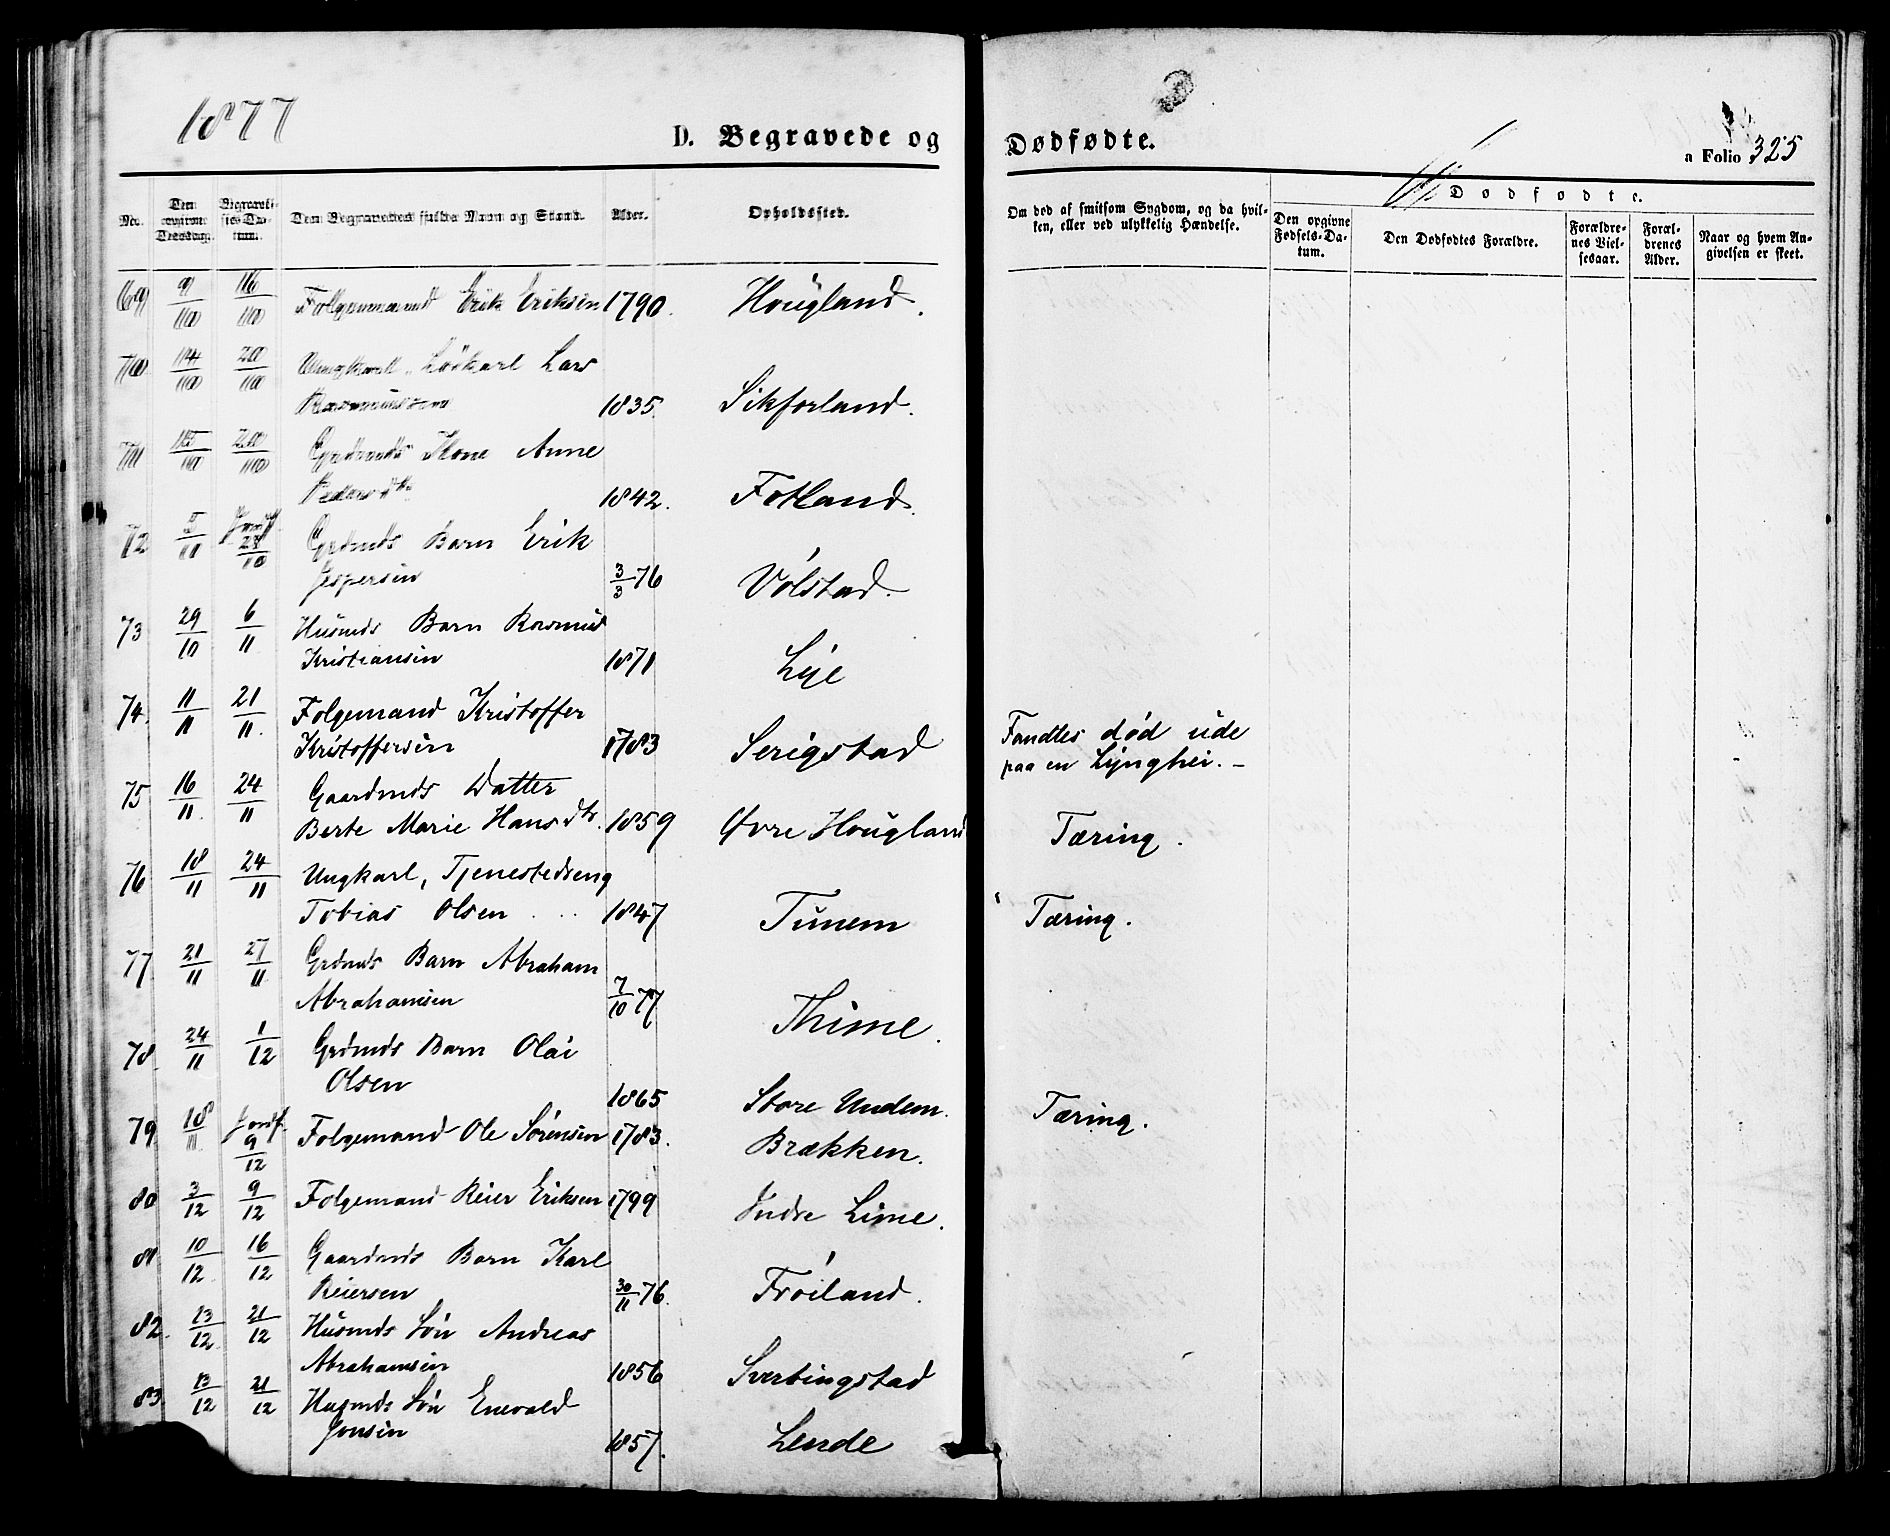 1877
D. Begravede og Dødfødte.
a Folio 325
No.
Den opgivne Dødsdag.
Begravelses-Datum.
Den Begravedes fulde Navn og Stand.
Alder.
Opholdssted.
Om død af smitsom Sygdom, og da hvilken, eller ved ulykkelig Hændelse.
Dødfødte.
Den opgivne Fødsels-Datum.
Den Dødfødtes Forældre.
Forældrenes Vielsesaar.
Forældrenes Alder.
Naar og hvem Angivelsen er skeet.
69 9/10 16/10 Folgemand Erik Eriksen 1790. Hougland.
70 14/10 20/10 Ungkarl, Løskarl Lars
Rasmussen 1835. Sikforland.
71 15/10 20/10 Grdmds Kone Anne
Pedersdtr 1842. Fotland.
72 Jordf. 28/10 Grdmds Barn Erik
Jespersen 3/3 76 Vølstad.
73 29/10 6/11 Husmds Barn Rasmus
Kristiansen 1871 Lye
74. 11/11 21/11. Folgemand Kristoffer
Kristoffersen 1783 Serigstad Fandtes død ude
paa en Lynghei. –
75 16/11. 24/11 Gaardmds Datter
Berte Marie Hansdtr. 1859 Øvre Hougland Tæring.
76 18/11 24/11 Ungkarl, Tjenestedreng
Tobias Olsen 1847 Tunem Tæring.
77 21/11 27/11 Grdmds Barn Abraham
Abrahamsen 7/10 77 Thime.
78. 24/11 1/12 Grdmds Barn Olai
Olsen 1865 Store Undem. Tæring.
79. 18/11. Jordf. 9/12 Folgemand Ole Sørensen 1783. Brækken.
80 3/12 9/12 Folgemand Reier Eriksen 1799 Indre Lime.
81 10/12. 16/12 Gaardmds Barn Karl
Reiersen 30/11 76. Frøiland.
82. 13/12 21/12 Husmds Søn Andreas
Abrahamsen 1856 Svertingstad
83 13/12 21/12 Husmds Søn Enevald
Jonsen 1857. Lende